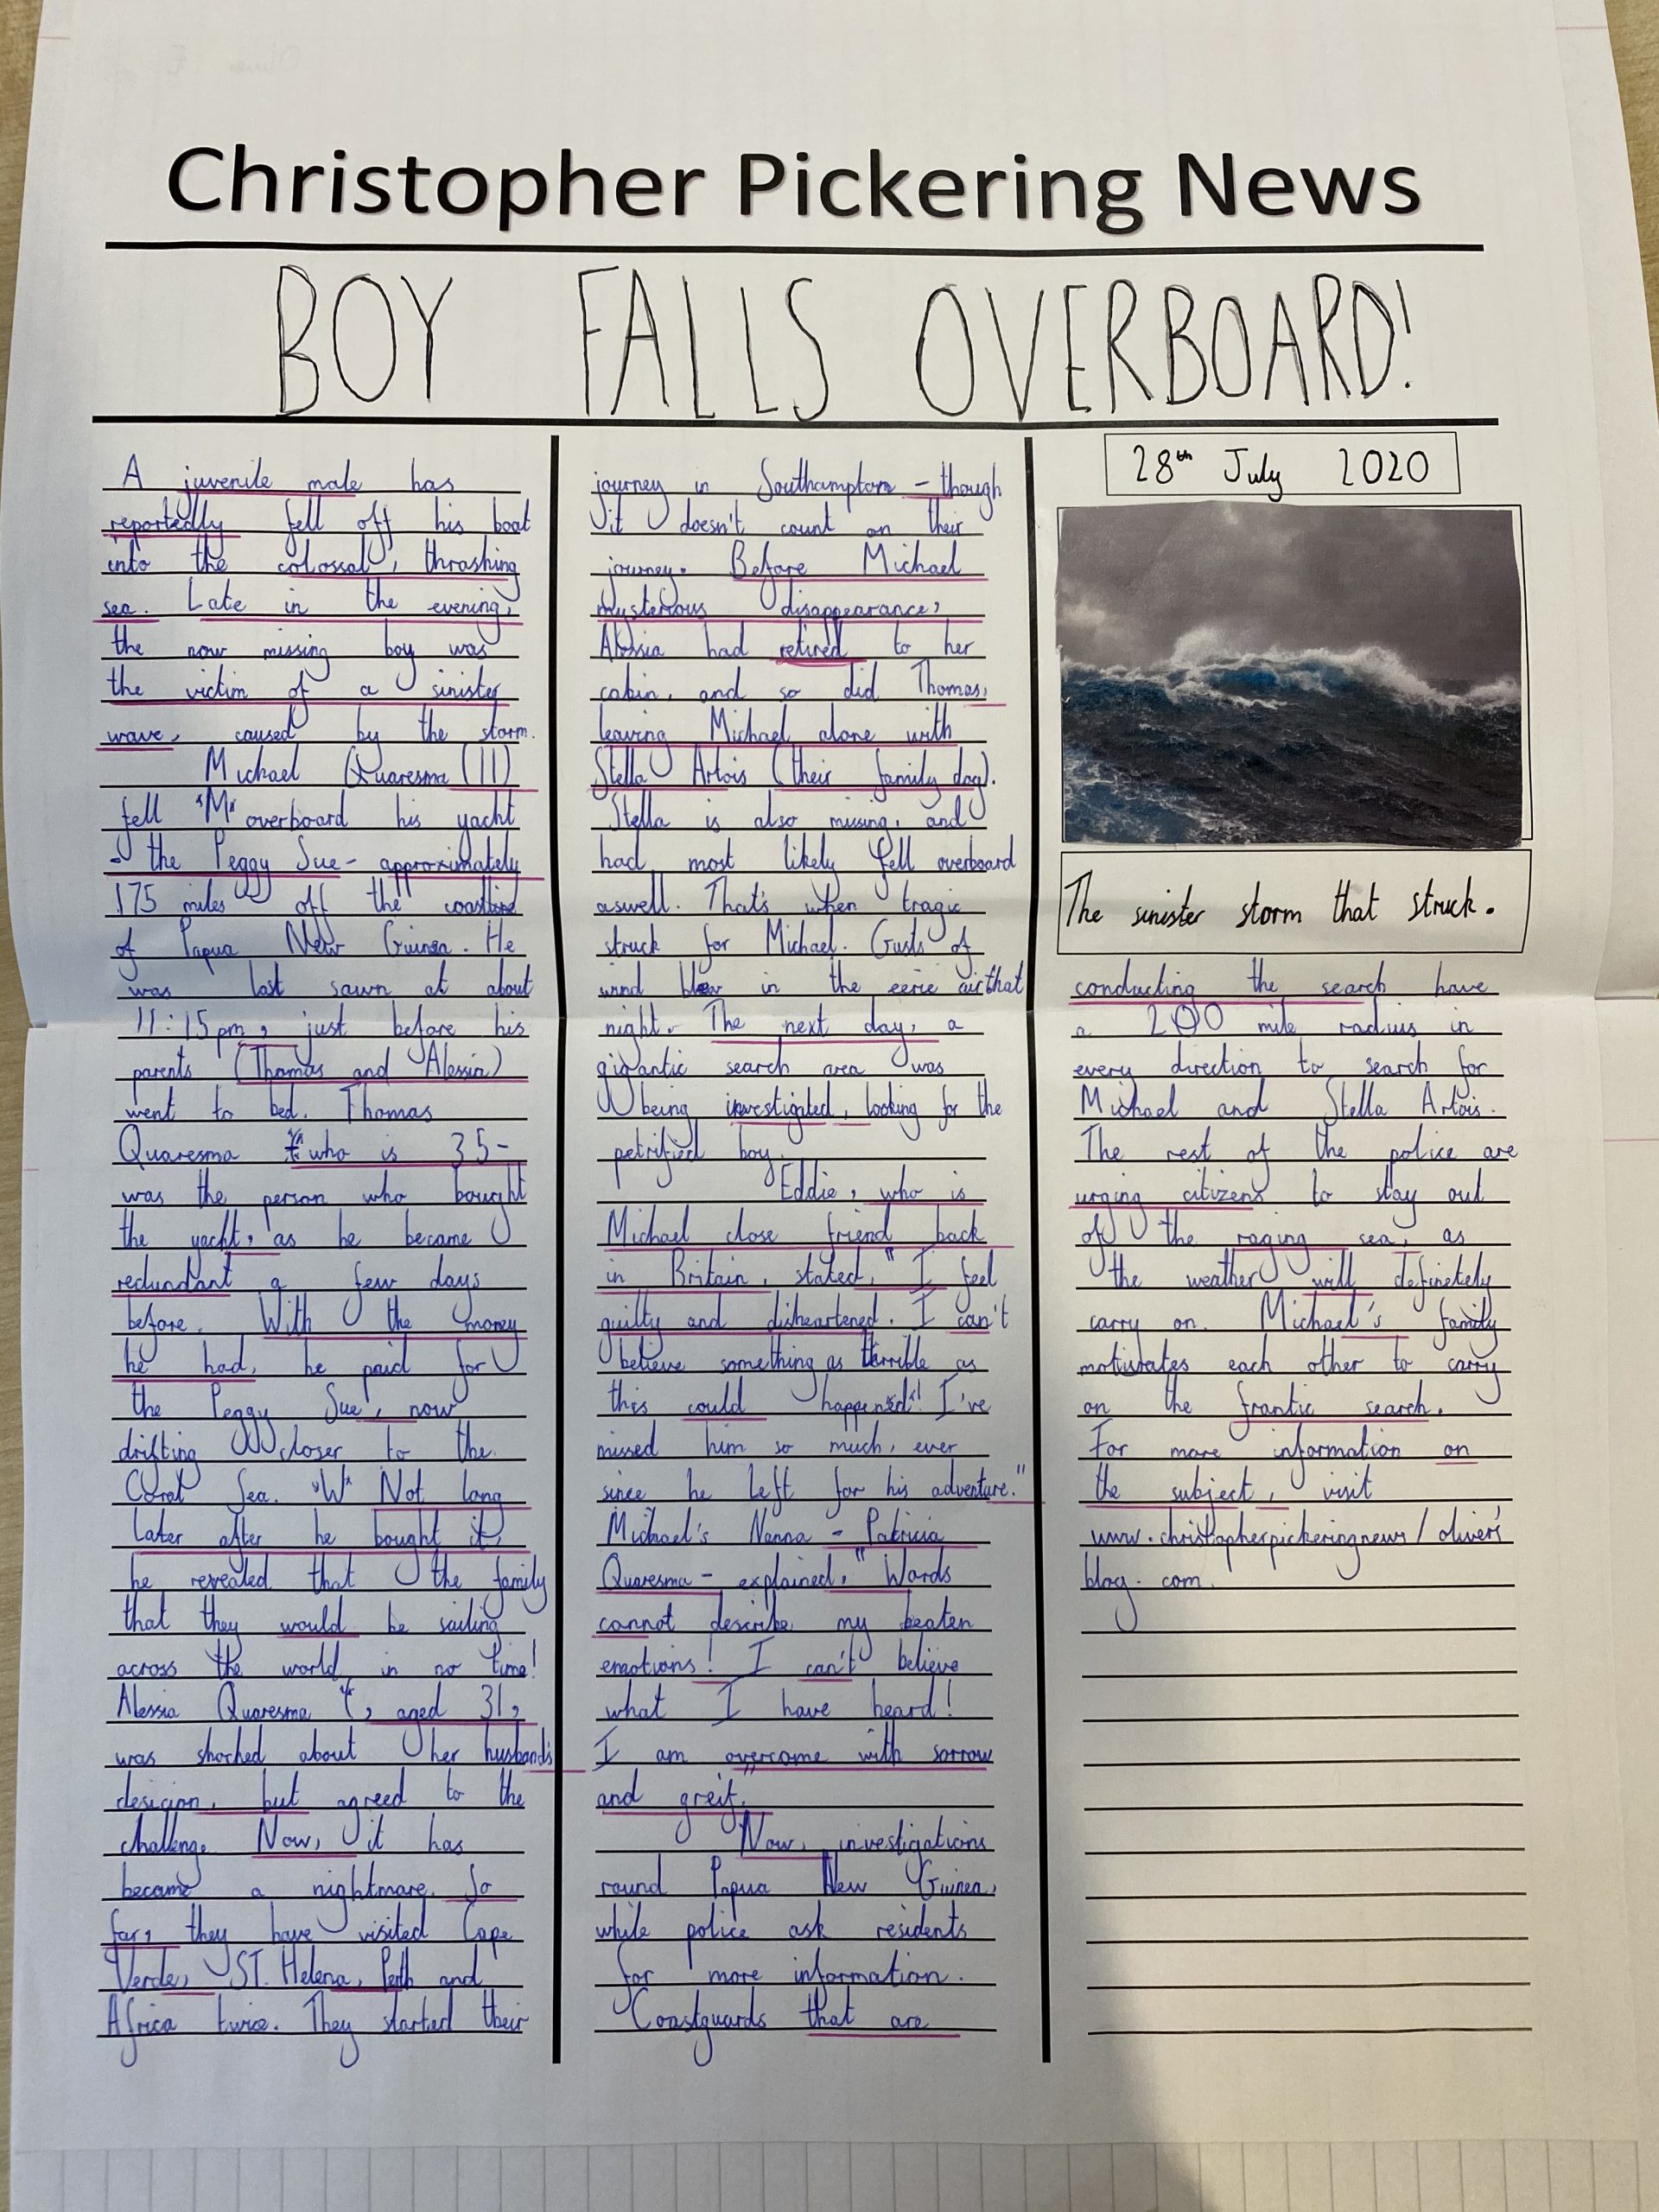 Christopher Pickering News
BOY FALLS OVERBOARD!
A juvenile male has
reportedly fell off his boat
into the colossal, thrashing
sea. Late in the evening,
the now missing boy was
the victim of a sinister
wave, caused by the storm.
Michael Quaresma (11)
fell "M" overboard his yacht
- the Peggy Sue - approximately
175 miles off the coastline
of Papua New Guinea. He
was last sawn at about
11:15pm, just before his
parents (Thomas and Alessia)
went to bed. Thomas
Quaresma who is 35-
was the person who bought
the yacht, as he became
redundant a few days
before. With the money
he had, he paid for
the Peggy Sue, now
drifting closer to the
Coral Sea. "W" Not long
later after he bought it,
he revealed that the family
that they would be sailing
across the world in no time!
Alessia Quaresma, aged 31,
was shocked about her husband's
desicion, but agreed to the
challenge. Now, it has
became a nightmare. So
far, they have visited Cape
Verde, ST. Helena, Perth and
Africa twice. They started their
journey in Southampton - though
it doesn't count on their
journey. Before Michael
mysterious disappearance,
Alessia had retired to her
cabin, and so did Thomas,
leaving Michael alone with
Stella Artois (their family dog).
Stella is also missing, and
had most likely fell overboard
aswell. That's when tragic
struck for Michael. Gusts of
wind blew in the eerie air that
night. The next day, a
gigantic search area was
being investigated, looking for the
petrified boy.
Eddie, who is
Michael close friend back
in Britain, stated, "I feel
guilty and disheartened. I can't
believe something as terrible as
this could happened! I've
missed him so much, ever
since he left for his adventure."
Michael's Nanna - Patricia
Quaresma - explained, "Words
cannot describe my beaten
emotions! I can't believe
what I have heard!
I am overcome with sorrow
and greif."
Now, investigations
round Papua New Guinea,
while police ask residents
for more information.
Coastguards that are
28th July 2020
The sinister storm that struck.
conducting the search have
a 200 mile radius in
every direction to search for
Michael and Stella Artois.
The rest of the police are
urging citizens to stay out
of the raging sea, as
the weather will definetely
carry on. Michael's family
motivates each other to carry
on the frantic search.
For more information on
the subject, visit
www.christopherpickeringnews/oliver's
blog.com.